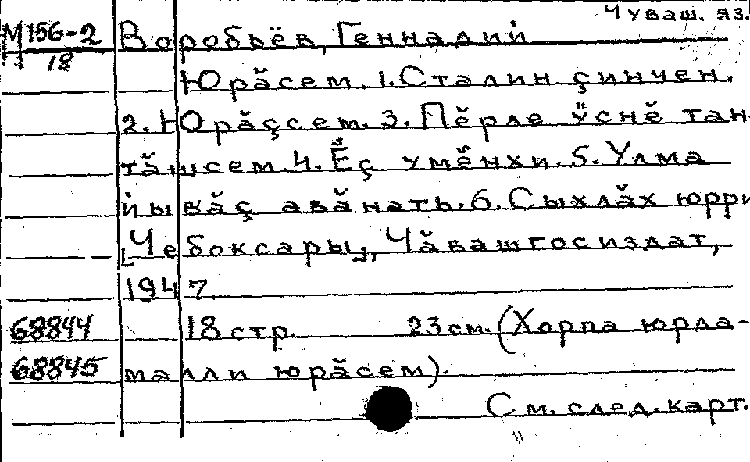 Чуваш. яз.
М 156-2 Воробьёв, Геннадий
18
Юрăсем. 1. Сталин çинчен.
2. Юрăçсем. 3. Пĕрле ӳснĕ тан-
тăшсем. 4. Ĕç умĕнхи. 5. Улма
йывăç авăнать. 6. Сыхлăх юрри
[Чебоксары], Чăвашгосиздат,
1947
68844 18 стр. 23 см. (Хорпа юрла-
68845 малли юрăсем).
См. след. карт.